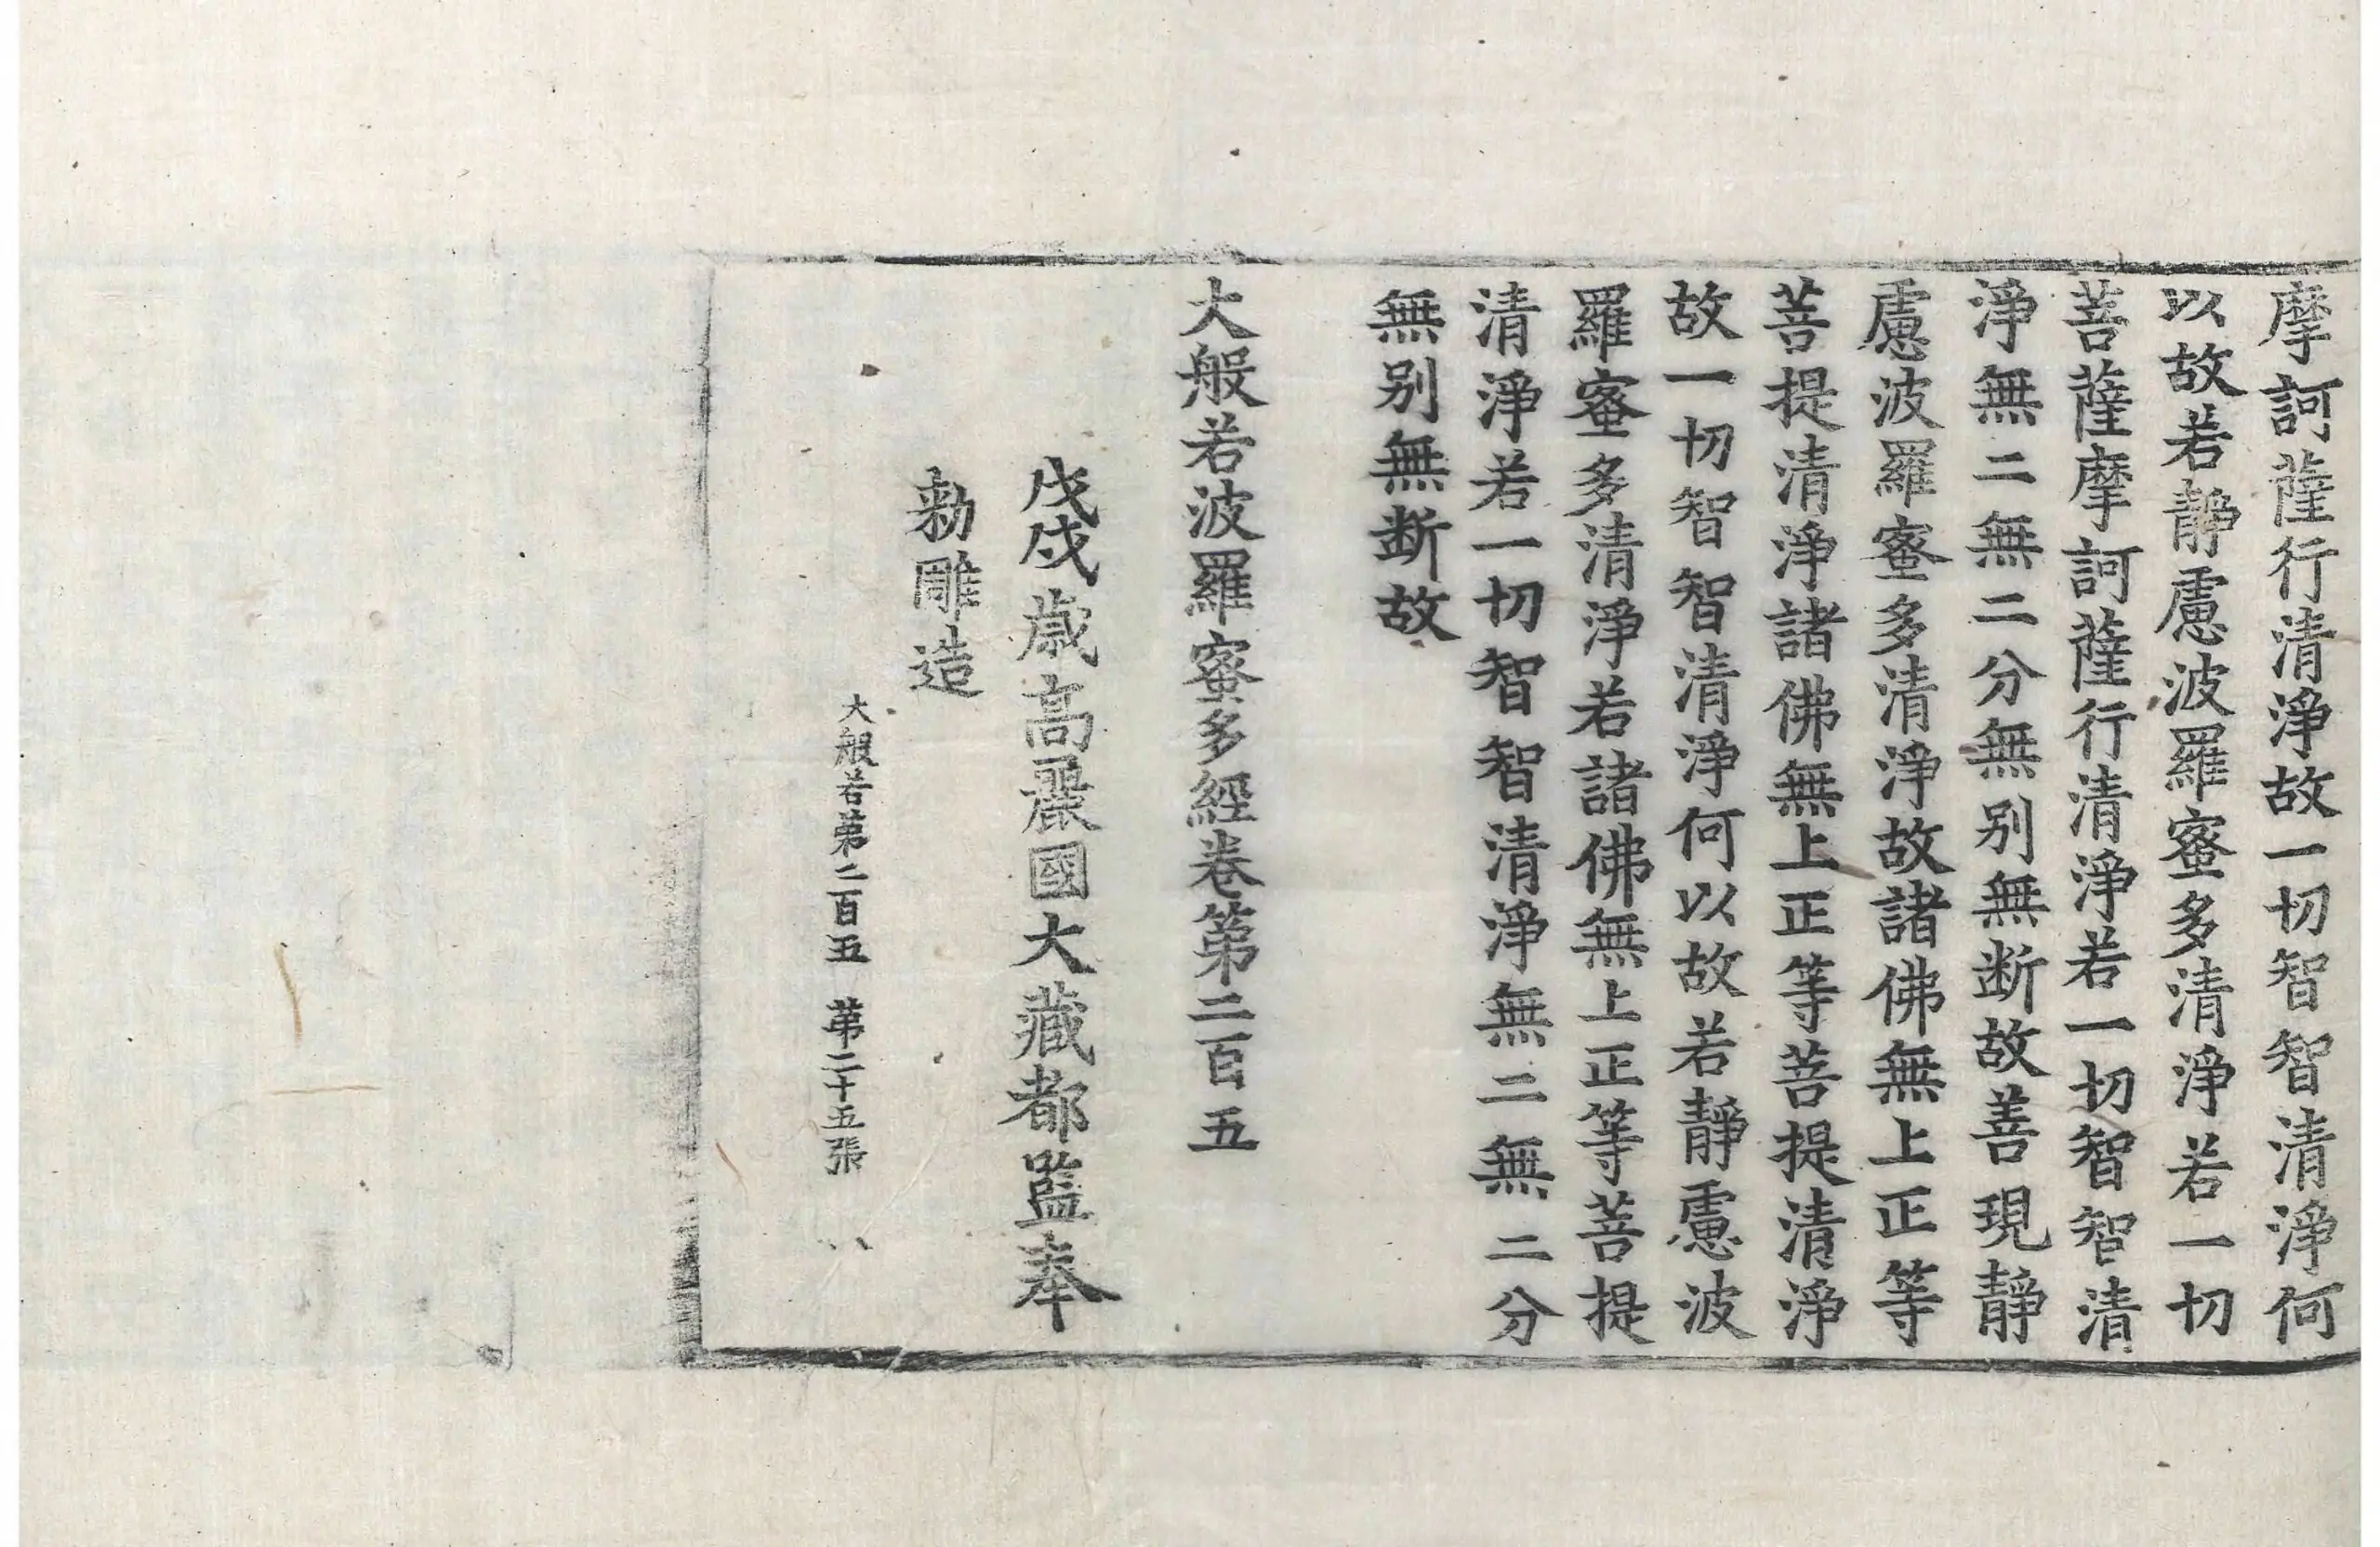 摩訶薩行清淨故一切智智清淨何
以故若靜慮波羅蜜多清淨若一切
菩薩摩訶薩行清淨若一切智智清
淨無二無二分無別無断故善現靜
慮波羅蜜多清淨故諸佛無上正等
菩提清淨諸佛無上正等菩提清淨
故一切智智清淨何以故若靜慮波
羅蜜多清淨若諸佛無上正等菩提
清淨若一切智智清淨無二無二分
無別無断故
大般若波羅蜜多經卷第二百五
戊戌歳高麗國大藏都監奉
勑雕造
大般若第二百五 第二十五張